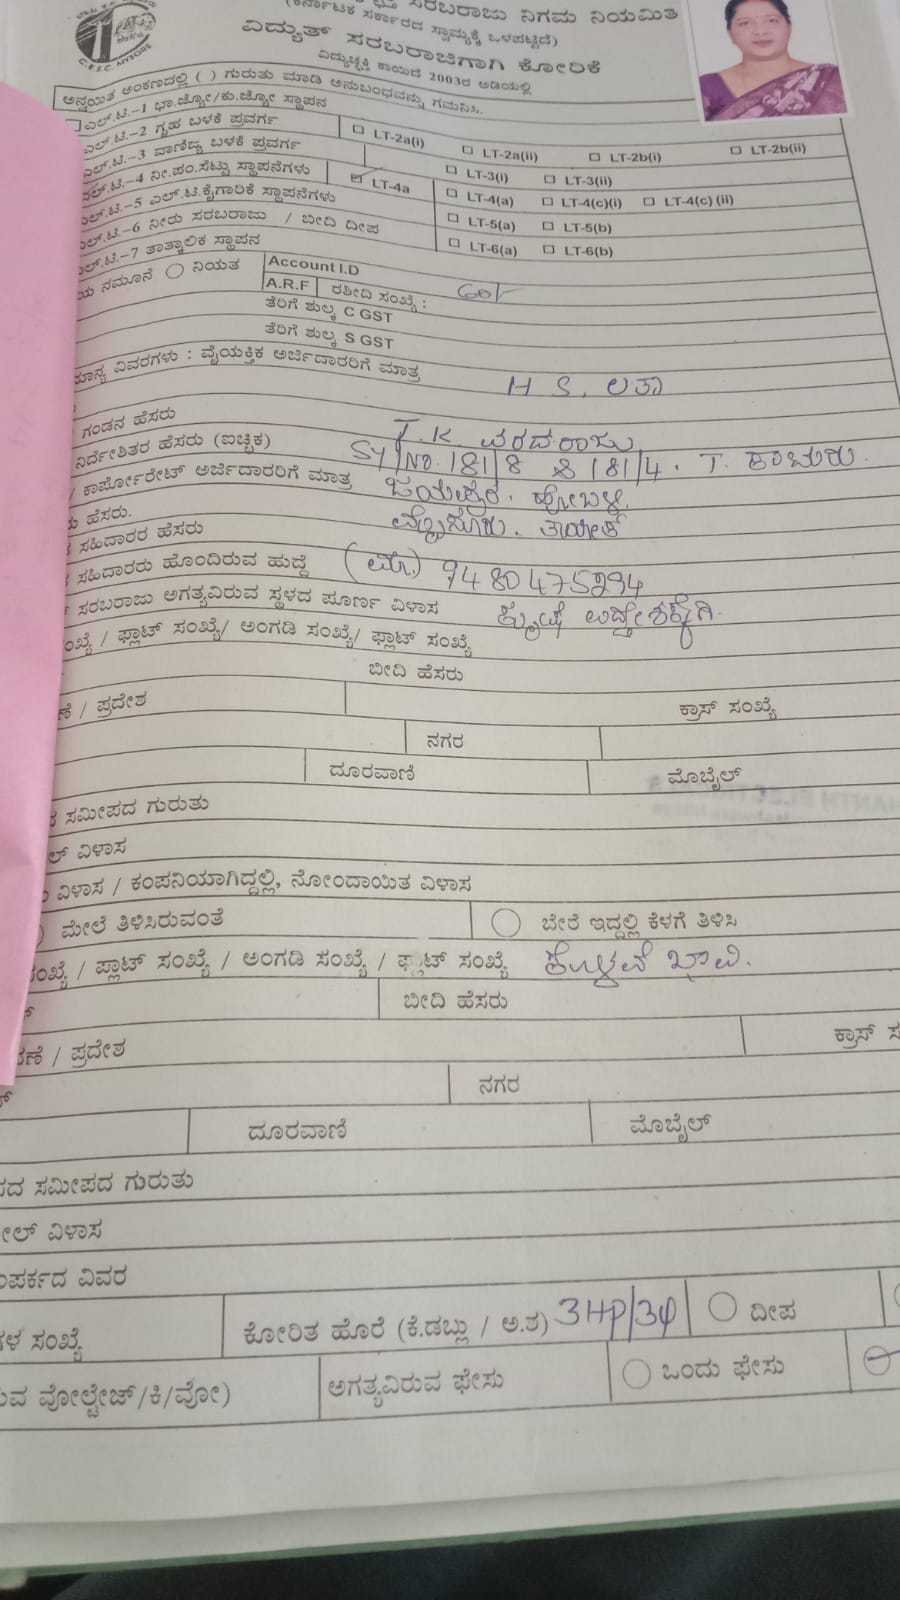 C.E.S.C. MYSORE
ಸರಬರಾಜು ನಿಗಮ ನಿಯಮಿತ
(ಕರ್ನಾಟಕ ಸರ್ಕಾರದ ಸ್ವಾಮ್ಯಕ್ಕೆ ಒಳಪಟ್ಟಿದೆ)
ವಿದ್ಯುತ್ ಸರಬರಾಜಿಗಾಗಿ ಕೋರಿಕೆ
ವಿದ್ಯುಚ್ಛಕ್ತಿ ಕಾಯಿದೆ 2003ರ ಅಡಿಯಲ್ಲಿ
ಅನ್ವಯಿತ ಅಂಕಣದಲ್ಲಿ ( ) ಗುರುತು ಮಾಡಿ ಅನುಬಂಧವನ್ನು ಗಮನಿಸಿ.
ಎಲ್.ಟಿ.-1 ಭಾ.ಜ್ಯೋ/ಕು.ಜ್ಯೋ ಸ್ಥಾಪನ
ಎಲ್.ಟಿ.-2 ಗೃಹ ಬಳಕೆ ಪ್ರವರ್ಗ LT-2a(i) LT-2a(ii) LT-2b(i) LT-2b(ii)
ಎಲ್.ಟಿ.-3 ವಾಣಿಜ್ಯ ಬಳಕೆ ಪ್ರವರ್ಗ LT-3(i) LT-3(ii)
ಎಲ್.ಟಿ.-4 ನೀ.ಪಂ.ಸೆಟ್ಟು ಸ್ಥಾಪನೆಗಳು LT-4a LT-4(a) LT-4(c)(i) LT-4(c) (ii)
ಎಲ್.ಟಿ.-5 ಎಲ್.ಟಿ.ಕೈಗಾರಿಕೆ ಸ್ಥಾಪನೆಗಳು LT-5(a) LT-5(b)
ಎಲ್.ಟಿ.-6 ನೀರು ಸರಬರಾಜು / ಬೀದಿ ದೀಪ LT-6(a) LT-6(b)
ಎಲ್.ಟಿ.-7 ತಾತ್ಕಾಲಿಕ ಸ್ಥಾಪನ
ನಮೂನೆ ನಿಯತ Account I.D
A.R.F ರಶೀದಿ ಸಂಖ್ಯೆ : 60/-
ತೆರಿಗೆ ಶುಲ್ಕ C GST
ತೆರಿಗೆ ಶುಲ್ಕ S GST
ವಿವರಗಳು : ವೈಯಕ್ತಿಕ ಅರ್ಜಿದಾರರಿಗೆ ಮಾತ್ರ
H S. ಲತಾ
ಗಂಡನ ಹೆಸರು T.K. ವರದರಾಜು
ನಿರ್ದೇಶಿತರ ಹೆಸರು (ಐಚ್ಛಿಕ) SY/No. 181/8 & 181/4. T.
/ ಕಾರ್ಪೋರೇಟ್ ಅರ್ಜಿದಾರರಿಗೆ ಮಾತ್ರ ಜಯಪುರ. ಹೋಬಳಿ
ಹೆಸರು. ಮೈಸೂರು.
ಸಹಿದಾರರ ಹೆಸರು
ಸಹಿದಾರರು ಹೊಂದಿರುವ ಹುದ್ದೆ (ಮೊ.) 9480475294
ಸರಬರಾಜು ಅಗತ್ಯವಿರುವ ಸ್ಥಳದ ಪೂರ್ಣ ವಿಳಾಸ ಕೃಷಿ ಉದ್ದೇಶಕ್ಕಾಗಿ
/ ಫ್ಲಾಟ್ ಸಂಖ್ಯೆ/ ಅಂಗಡಿ ಸಂಖ್ಯೆ/ ಫ್ಲಾಟ್ ಸಂಖ್ಯೆ
ಬೀದಿ ಹೆಸರು
/ ಪ್ರದೇಶ ಕ್ರಾಸ್ ಸಂಖ್ಯೆ
ನಗರ
ದೂರವಾಣಿ ಮೊಬೈಲ್
ಸಮೀಪದ ಗುರುತು
ವಿಳಾಸ
ವಿಳಾಸ / ಕಂಪನಿಯಾಗಿದ್ದಲ್ಲಿ, ನೋಂದಾಯಿತ ವಿಳಾಸ
ಮೇಲೆ ತಿಳಿಸಿರುವಂತೆ ಬೇರೆ ಇದ್ದಲ್ಲಿ ಕೆಳಗೆ ತಿಳಿಸಿ
/ ಪ್ಲಾಟ್ ಸಂಖ್ಯೆ / ಅಂಗಡಿ ಸಂಖ್ಯೆ / ಫ್ಲಾಟ್ ಸಂಖ್ಯೆ ಕೊಳವೆ ಬಾವಿ.
ಬೀದಿ ಹೆಸರು
/ ಪ್ರದೇಶ ಕ್ರಾಸ್
ನಗರ
ದೂರವಾಣಿ ಮೊಬೈಲ್
ಸಮೀಪದ ಗುರುತು
ವಿಳಾಸ
ವಿವರ
ಸಂಖ್ಯೆ ಕೋರಿತ ಹೊರೆ (ಕೆ.ಡಬ್ಲು / ಅ.ಶ) 3HP/3φ ದೀಪ
ವೋಲ್ಟೇಜ್/ಕಿ/ವೋ) ಅಗತ್ಯವಿರುವ ಫೇಸು ಒಂದು ಫೇಸು